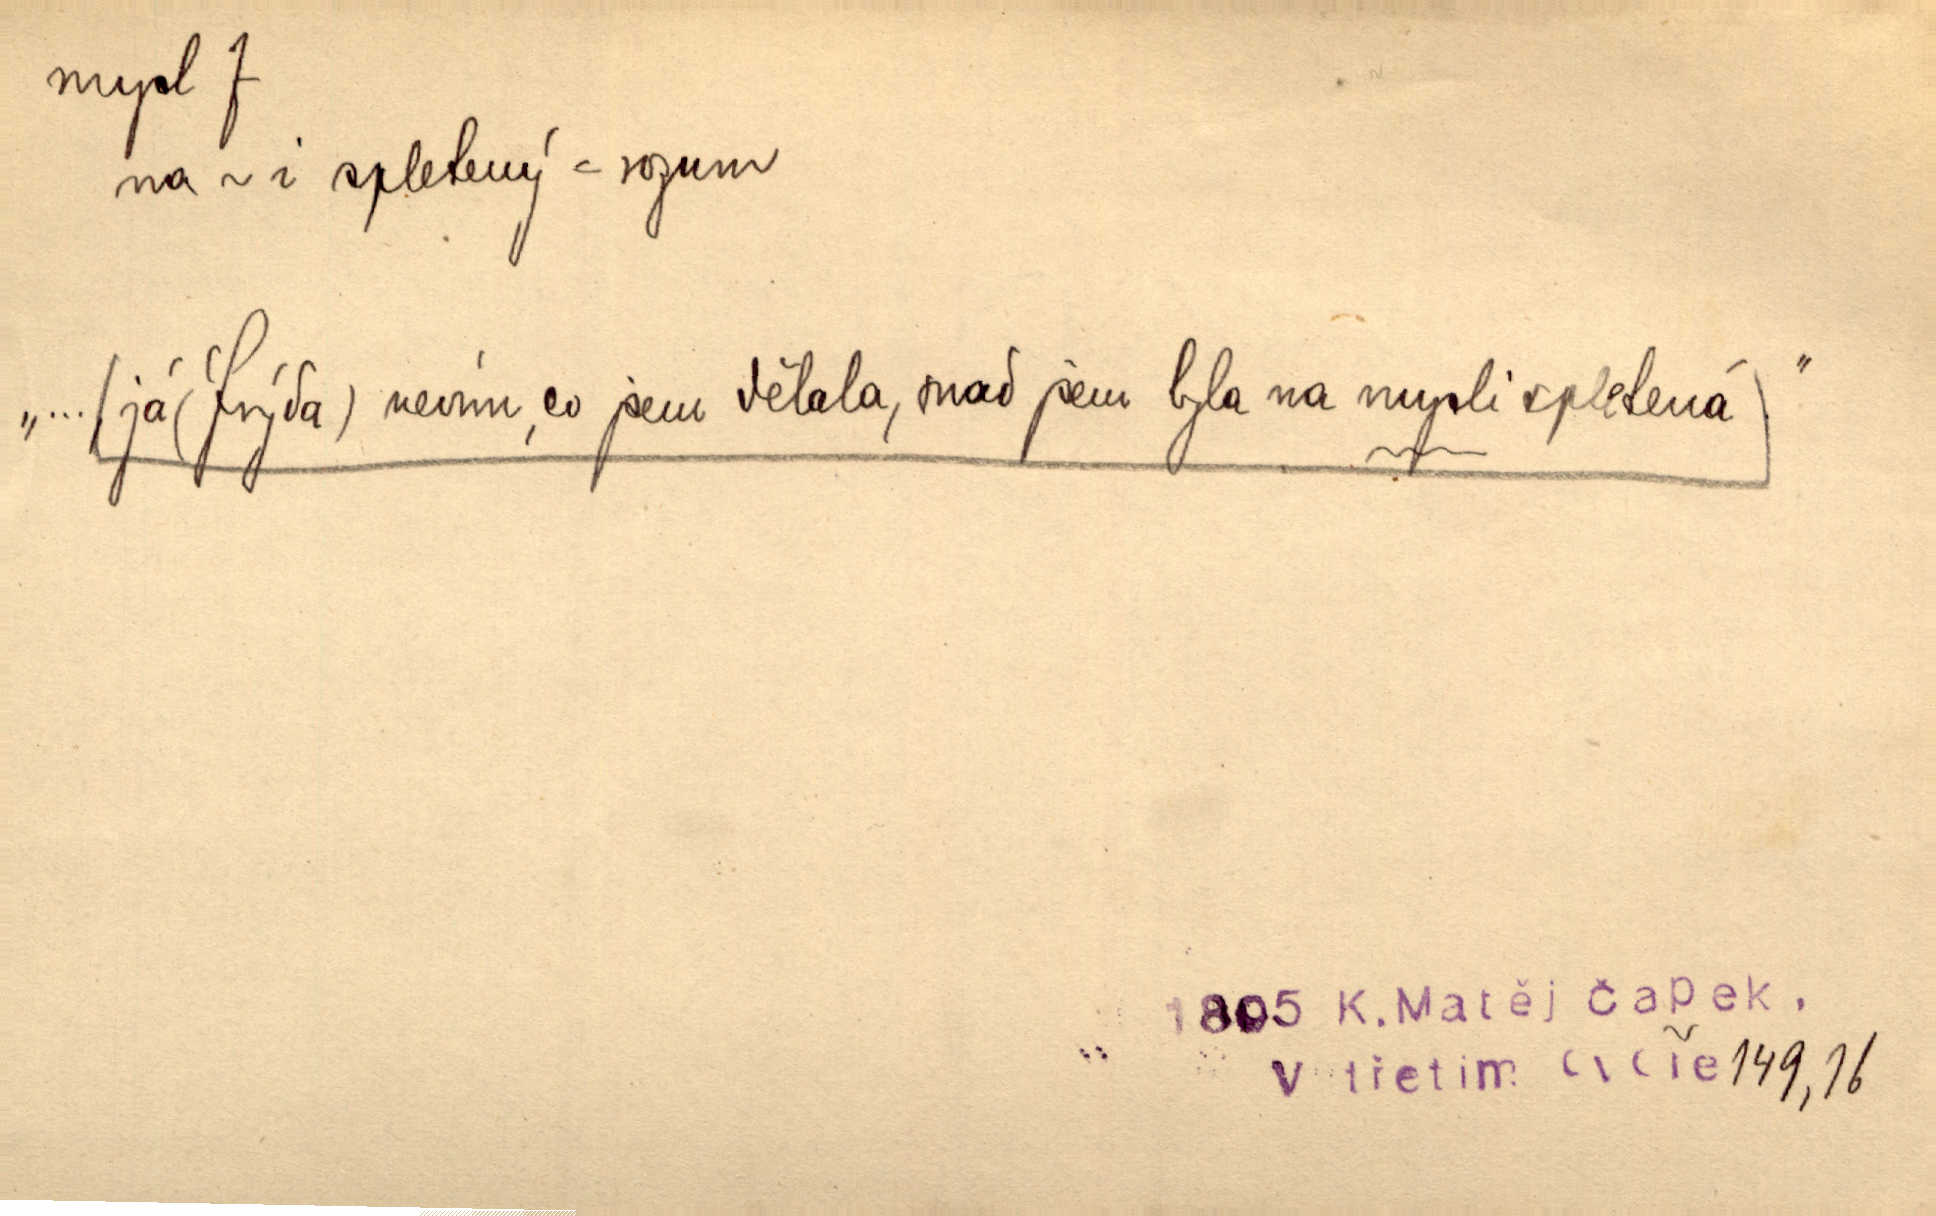 mysl f
na ~ i spletený = rozum
„... já (Frýda) nevím, co jsem dělala, snad jsem byla na mysli spletená."
1805 K.Matěj Čapek.
V třetím 149,16